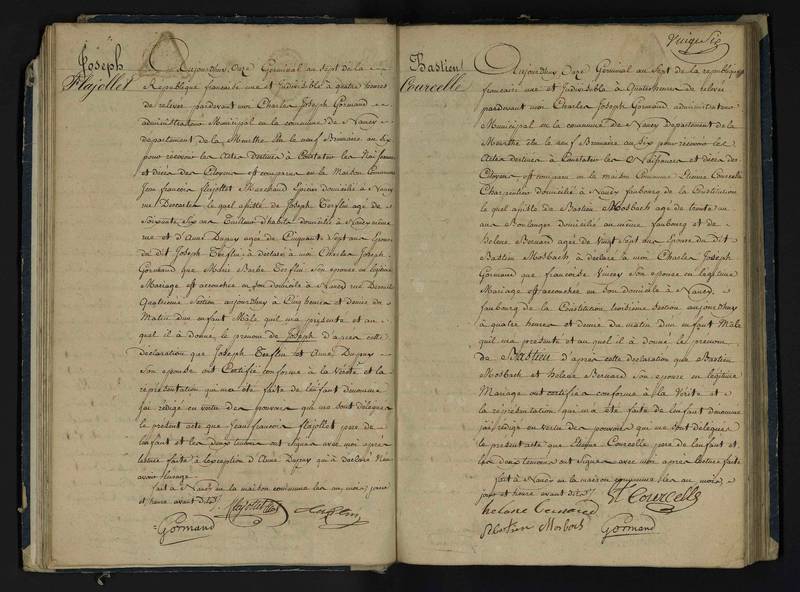 Joseph
Flajollet
Aujourdhuy Onze Germinal an sept de la
République française une et Indivisible à quatre heures
de relevée pardevant moi Charles Joseph Gormand
administrateur Municipal en la commune de Nancy
departement de la Meurthe élu le neuf Brumaire an six
pour recevoir les Actes destinés à Constater les Naissances
et décès des Citoyens est comparu en la Maison Commune
Jean françois flajollet Marchand Epicier domicilié à Nancy
rue le quel assisté de Joseph Terflin agé de
Soixante six ans Tailleur d'habits domicilié à Nancy même
rue et d'Anne Dupuy agée de Cinquante Sept ans Epouse
du dit Joseph Terflin, à déclaré à moi Charles Joseph
Gormand que Marie Barbe Terflin Son épouse en légitime
Mariage est accouchée en Son domicile à Nancy rue
quatrieme Section aujourdhuy à Cinq heures et demie du
Matin dun enfant Mâle quil ma présenté et au
quel il à donné le prenom de Joseph d'apres cette
déclaration que Joseph Terflin et Anne Dupuy
Son epouse ont Certifié conforme à la Vérité et la
représentation qui ma été faite de lenfant dénommé
jai rédigé en vertu des pouvoirs qui me sont délégués
le présent acte que Jean françois flajollet pere de
lenfant et les deux temoins ont Signé avec moi après
lecture faite à lexception d'Anne Dupuy qui à déclaré
avoir lusage
fait à Nancy en la maison commune les an, mois, jour
et heure avant dits
flajollet
Gormand
Vingt Six
Bastien
Courcelle
Aujourdhuy Onze Germinal an Sept de la republique
francaise une et Indivisible à quatre heures de relevée
pardevant moi Charles Joseph Gormand administrateur
Municipal en la commune de Nancy Departement de la
Meurthe élu le neuf Brumaire an six pour recevoir les
Actes destinés à Constater les Naissances et décès des
Citoyens est comparu en la maison Commune Etienne Courcelle
Charpentier domicilié à Nancy faubourg de la Constitution
le quel assisté de Bastien Mosbach agé de trente un
ans Boulanger domicilié au même faubourg et de
helene Bernard agée de vingt Sept ans Epouse du Dit
Bastien Mosbach à déclaré à moi Charles Joseph
Gormand que francoise Son epouse en légitime
Mariage est accouchée en Son domicile à Nancy
faubourg de la Constitution troisieme Section aujourdhuy
à quatre heures et demie du matin dun enfant Mâle
quil ma présenté et au quel il à donné le prenom
de Bastien d'après cette déclaration que Bastien
Mosbach et helene Bernard Son epouse en légitime
Mariage ont certifié conforme à la Vérité et
la représentation qui ma été faite de lenfant dénommé
jai rédigé en vertu des pouvoirs qui me sont délégués
le présent acte que Etienne Courcelle pere de lenfant et
les deux temoins ont Signé avec moi après lecture faite
fait à Nancy en la maison commune les an mois,
jour et heure avant dits
Et Courcelle
helene bernard
Bastien Mosbach
Gormand